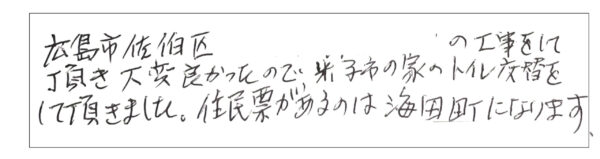 広島市佐伯区 の工事をして
頂き大変良かったので米子市の家のトイレ交替を
して頂きました。住民票があるのは海田町になります、